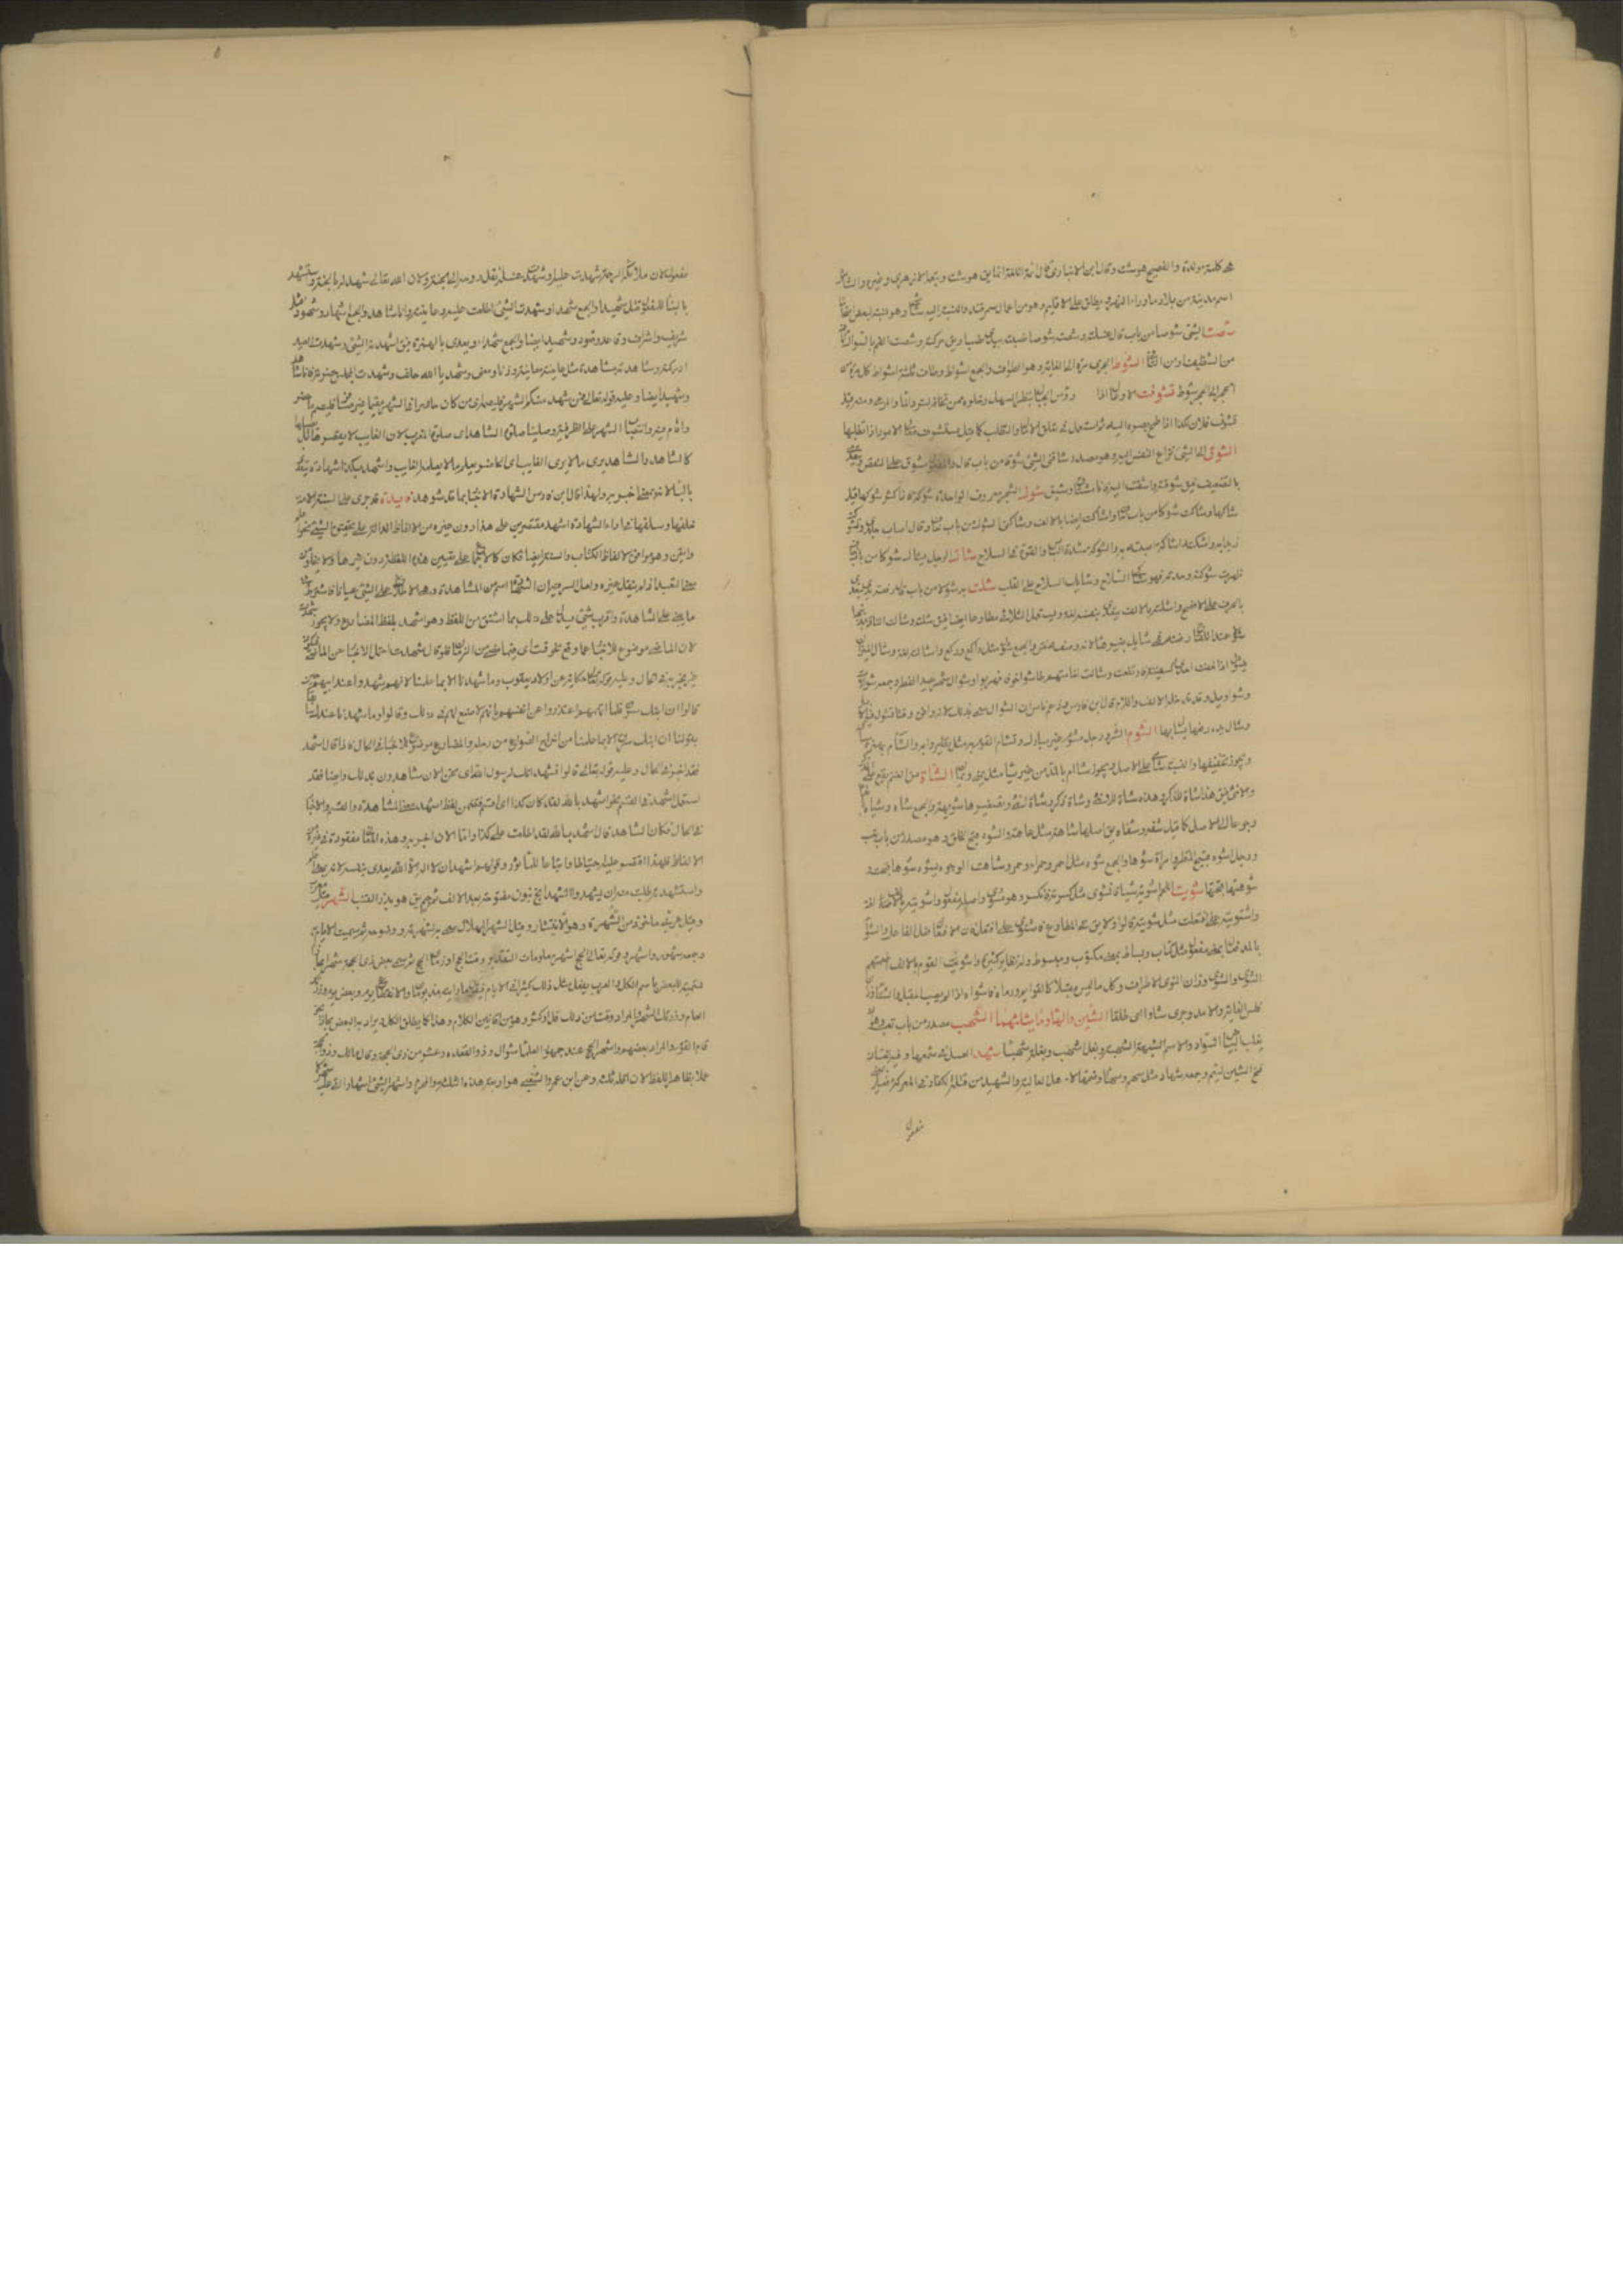 هى كلمة مولدة والفصيح هوشت وقال ابن الانبارى قال ائمة اللغة انما يق هوشت وتبعه الازهرى وغيره والشاش
اسم مدينة من بلاد ما وراء النهر ويطلق على الاقليم وهو من اعمال سمرقند والنسبة اليه شاشى وهو نسبة لبعض اصحابنا
شصت الشئ شوصا من باب قال غسلته وشصت شوصا نصبته بيدى ويق حركته وشصت الفم بالسواك
من التنظيف ومن الشوط الجرى مرة الى الغاية وهو الطلق والجمع اشواط وطاف ثلثة اشواط كل مرة من
الحجر الى الحجر شوط تشوفت الاوعال اذا رؤس الجبال تنظر السهل وخلوه ممن تخافه لترد الماء والمرعى ومنه قيل
تشوف فلان لكذا اذا طمح بصره اليه ثم استعمل فى تعلق الآمال والتطلب كما قيل يستشرف معالى الامور اذا تطلبها
الشوق الى الشئ نزاع النفس اليه وهو مصدر شاقنى الشئ شوقا من باب قال والمفعول مشوق على النقص ويتعدى
بالتضعيف فيق شوقته واشتقت اليه فانا مشتاق وشيق شوك الشجر معروف الواحدة شوكة فاذا كثر شوكها قيل
شاكها وشاكت شوكا من باب خاف واشاكت ايضا بالالف وشاكنى الشوك من باب قال اصاب جلدى وشوكت
زيدا به واشكته اشاكة اصبته به والشوكة شدة الباس والقوة فى السلاح شاك الرجل يشاك شوكا من باب خاف
ظهرت شوكته وحدته فهو شائك السلاح وشاكى السلاح على القلب شلت به شولا من باب قال رفعته يتعدى
بالحرف على الافصح واشلته بالالف يتعدى بنفسه لغة ويستعمل الثلاثى مطاوعا ايضا فيق شلته فشال وشالت الناقة بذنبها
عند اللقاح رفعته فهى شايل بغير هاء لانه وصف مختص والجمع شول مثل راكع وركع واشالته لغة وشال الميزان
يشول اذا خفت احدى كفتيه فارتفعت وشالت نعامتهم طاشوا خوفا فهربوا وشوال شهر عيد الفطر وجمعه شوالات
وشواويل وقد تدخله الالف واللام قال ابن فارس وزعم ناس ان الشوال سمى بذلك لانه وافق وقتا تشول فيه الابل
وشال يده رفعها يسأل بها الشوم الشر ورجل مشوم غير مبارك وتشام القوم به مثل تطيروا به والشام بهمزة ساكنة
ويجوز تخفيفها والنسبة شامى على الاصل ويجوز شاام بالمد من غير ياء مثل يمنى ويمان الشاة من الغنم يقع على الذكر
والانثى فيق هذا شاة للذكر وهذه شاة للانثى وشاة ذكر وشاة انثى وتصغيرها شويهة والجمع شاء وشياه بالهاء
رجوعا الى الاصل كما قيل شفة وشفاه ويق اصلها شاهة مثل عاهة والشوه قبح الخلقة وهو مصدر من باب تعب
ورجل اشوه قبيح المنظر وامراة شوهاء والجمع شوه مثل احمر وحمراء وحمر وشاهت الوجوه تشوه قبحت و
شوهتها قبحتها شويت اللحم اشويه شيا فانشوى مثل كسرته فانكسر وهو مشوى واصله مفعول واشويته بالالف لغة
واشتويته على افتعلت مثل شويته قالوا ولا يق فى المطاوع فاشتوى على افتعل فان الافتعال فعل الفاعل والشواء
بالمد فعال بمعنى مفعول مثل كتاب وبساط بمعنى مكتوب ومبسوط وله نظاير كثيرة واشويت القوم بالالف اطعمتهم
الشواء والشوى وزان النوى الاطراف وكل ما ليس مقتلا كالقوائم ورماه فاشواه اذا لم يصب المقتل والشاو وزان
فلس الغاية والامد وجرى شاوا اى طلقا الشين والهاء وما يثلثهما الشهب مصدر من باب تعب وهو ان
يغلب البياض السواد والاسم الشهبة وبغل اشهب وبغلة شهباء شهد العسل فى شمعها وفيه لغتان
فتح الشين لتميم وجمعه شهاد مثل سهم وسهام وضمها لاهل العالية والشهيد من قتله الكفار فى المعركة فعيل
بمعنى
مفعول لان ملائكة الرحمة شهدت غسله وشهدت نقل روحه الى الجنة ولان الله تعالى شهد له بالجنة واستشهد
بالبناء للمفعول قتل شهيدا والجمع شهداء وشهدت الشئ اطلعت عليه وعاينته فانا شاهد والجمع اشهاد وشهود مثل
شريف واشراف وقاعد وقعود وشهيد ايضا والجمع شهداء ويعدى بالهمزة فيق اشهدته الشئ وشهدت العيد
ادركته وشاهدته مشاهدة مثل عاينته معاينة وزنا ومعنى وشهد بالله حلف وشهدت المجلس حضرته فانا شاهد
وشهيد ايضا وعليه قوله تعالى فمن شهد منكم الشهر فليصمه اى من كان حاضرا فى الشهر مقيما غير مسافر فليصم ما حضر
واقام فيه وانتصاب الشهر على الظرفية وصلينا صلوة الشاهد اى صلوة المغرب لان الغايب لا يقصرها بل يصليها
كالشاهد والشاهد يرى ما لا يرى الغايب اى الحاضر يعلم ما لا يعلمه الغايب واشهد بكذا شهادة يتعدى
بالباء لانه بمعنى اخبر به ولهذا قال ابن فارس الشهادة الاخبار بما قد شوهد فايدة قد جرى على السنة الامة
خلفها وسلفها فى اداء الشهادة اشهد مقتصرين على هذا دون غيره من الالفاظ الدالة على تحقيق الشئ نحو اعلم
واتيقن وهو موافق لالفاظ الكتاب والسنة ايضا فكان كالاجماع على تعيين هذه اللفظة دون غيرها ولا يخلو من
معنى التعبد اذ لم ينقل غيره ولعل السر فيه ان الشهادة اسم من المشاهدة وهى الاطلاع على الشئ عيانا فاشترط
ما ينبئ على المشاهدة واقرب شئ يدل على ذلك ما اشتق من اللفظ وهو اشهد بلفظ المضارع ولا يجوز شهدت
لان الماضى موضوع للاخبار عما وقع نحو قمت اى فيما مضى من الزمان فلو قال شهدت احتمل الاخبار عن الماضى فيكون
غير مخبر به فى الحال وعليه قوله تعالى حكاية عن اولاد يعقوب وما شهدنا الا بما علمنا لانهم شهدوا عند ابيهم
قالوا ان ابنك سرق فلما اتهمهم اعتذروا عن انفسهم بانهم لا صنع لهم فى ذلك وقالوا وما شهدنا عندك
بقولنا ان ابنك سرق الا بما علمنا من اخراج الصواع من رحله والمضارع موضوع للاخبار فى الحال فاذا قال اشهد
فقد اخبر فى الحال وعليه قوله تعالى قالوا نشهد انك لرسول الله اى نحن الان شاهدون بذلك وايضا فقد
استعمل اشهد فى القسم نحو اشهد بالله لقد كان كذا اى اقسم فتضمن لفظ اشهد معنى المشاهدة والقسم والاخبار
فى الحال فكان الشاهد قال اشهد بالله لقد اطلعت على كذا وانا الان اخبر به وهذه المعانى مفقودة فى غيره من
الالفاظ فلهذا اقتصر عليه احتياطا واتباعا للماثور وقولهم اشهد ان لا اله الا الله يعدى بنفسه لانه بمعنى اعلم
واستشهدته طلبت منه ان يشهد والشهدانج بنون مفتوحة بعد الالف ثم جيم يق هو بذر القنب الشهر قيل معرب
وقيل عربى ماخوذ من الشهرة وهو الانتشار وقيل الشهر الهلال سمى به لشهرته ووضوحه ثم سميت الايام به
وجمعه شهور واشهر وقوله تعالى الحج اشهر معلومات التقدير وقت الحج او زمان الحج ثم سمى بعض ذى الحجة شهرا مجازا
تسمية للبعض باسم الكل والعرب يفعل مثل ذلك كثيرا فى الايام فتقول ما رايته مذ يومان والانقطاع يوم وبعض يوم وزرتك
العام وزرتك الشهر والمراد وقت من ذلك قل او كثر وهو من افانين الكلام وهذا كما يطلق الكل ويراد به البعض مجازا نحو
قام القوم والمراد بعضهم واشهر الحج عند جمهور العلماء شوال وذو القعدة وعشر من ذى الحجة وقال مالك وذو الحجة
عملا بظاهر اللفظ لان اقله ثلثة وعن ابن عمر والشعبى هو اربعة هذه الثلثة والمحرم واشهر الشئ اشهارا اتى عليه شهر كما